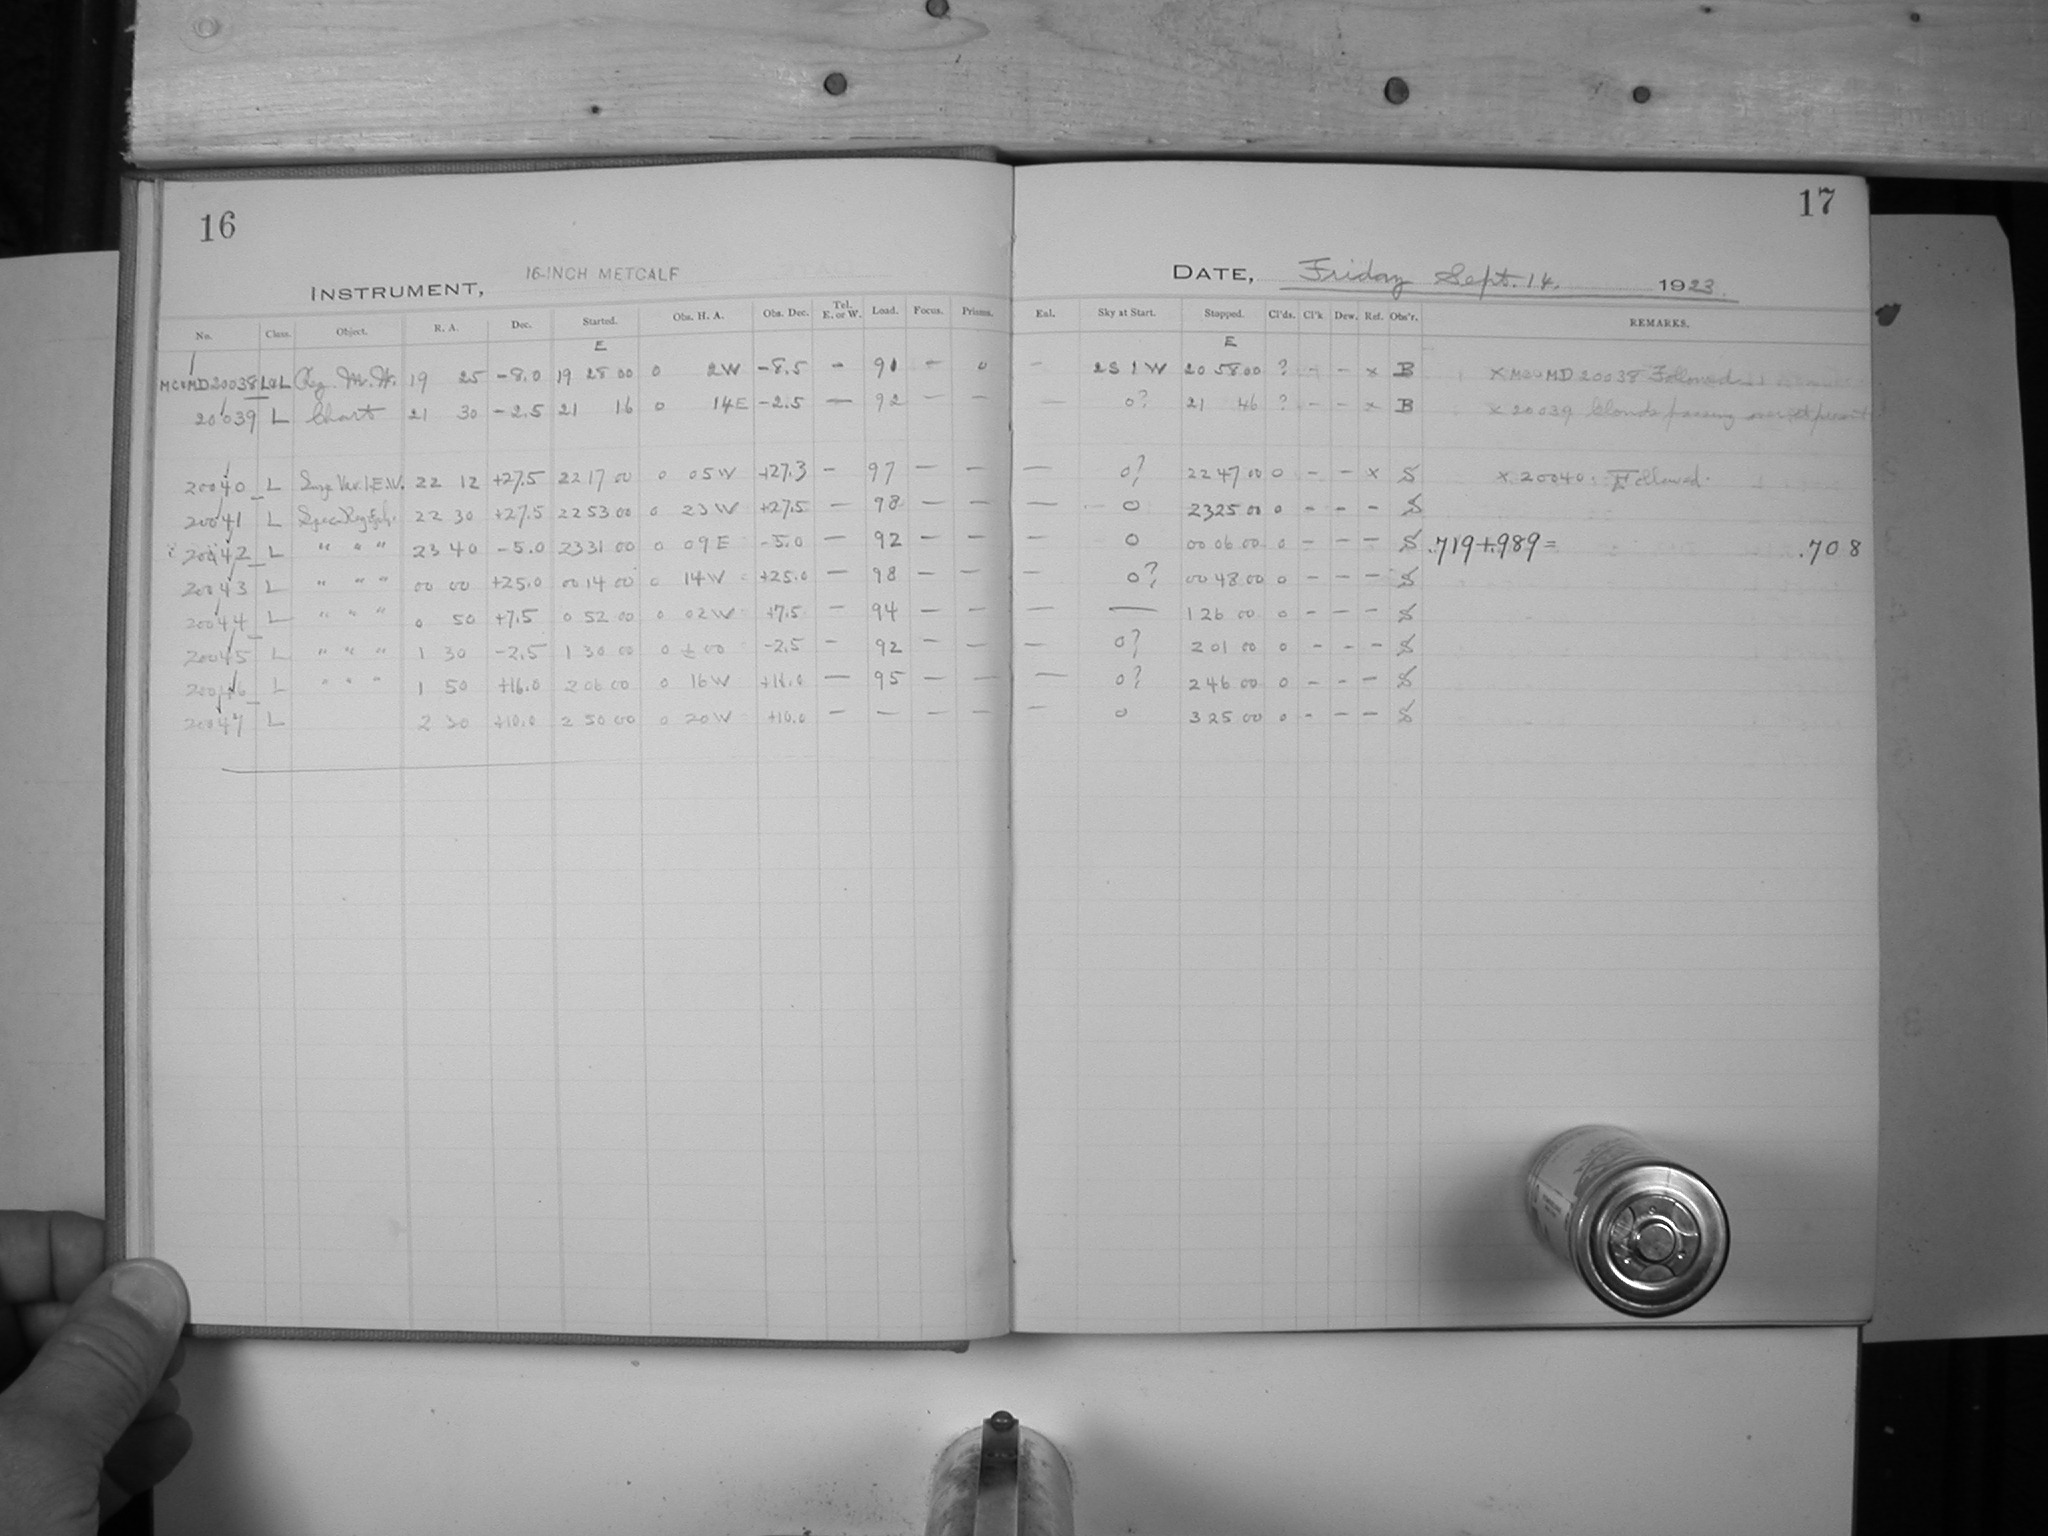 16
17
INSTRUMENT, 16-INCH METCALF
DATE, Friday Sept. 14. 1923.
No. Class. Object. R. A. Dec. Started. Obs. H. A. Obs. Dec. Tel. E. or W. Load. Focus. Prisms. Enl. Sky at Start. Stopped. Cl'ds. Cl'k. Dew. Ref. Obs'r. REMARKS.
E E
MC&MD20038 L&L Reg. M.W. 19 25 -8.0 19 28 00 0 2W -8.5 - 91 - 0 - 2S1W 20 58 00 ? - - x B x MC&MD 20038 Followed
20039 L Chart 21 30 -2.5 21 16 0 14E -2.5 — 92 — — — 0? 21 46 ? - - x B x 20039 Clouds passing over at
20040 L Var. 22 12 +27.5 22 17 00 0 05W +27.3 - 97 — — — 0? 22 47 00 0 - - x S x 20040: Followed.
20041 L 22 30 +27.5 22 53 00 0 23W +27.5 — 98 — — — 0 23 25 00 0 - - - S
20042 L " " " 23 40 -5.0 23 31 00 0 09E -5.0 — 92 — — — 0 00 06 00 0 - - - S .719+.989= .708
20043 L " " " 00 00 +25.0 00 14 00 0 14W +25.0 — 98 — — — 0? 00 48 00 0 - - - S
20044 L " " " 0 50 +7.5 0 52 00 0 02W +7.5 - 94 — — — — 1 26 00 0 - - - S
20045 L " " " 1 30 -2.5 1 30 00 0 ±00 -2.5 — 92 — — — 0? 2 01 00 0 - - - S
20046 L " " " 1 50 +16.0 2 06 00 0 16W +16.0 — 95 — — — 0? 2 46 00 0 - - - S
20047 L 2 30 +10.0 2 50 00 0 20W +10.0 — — — — — 0 3 25 00 0 - - - S